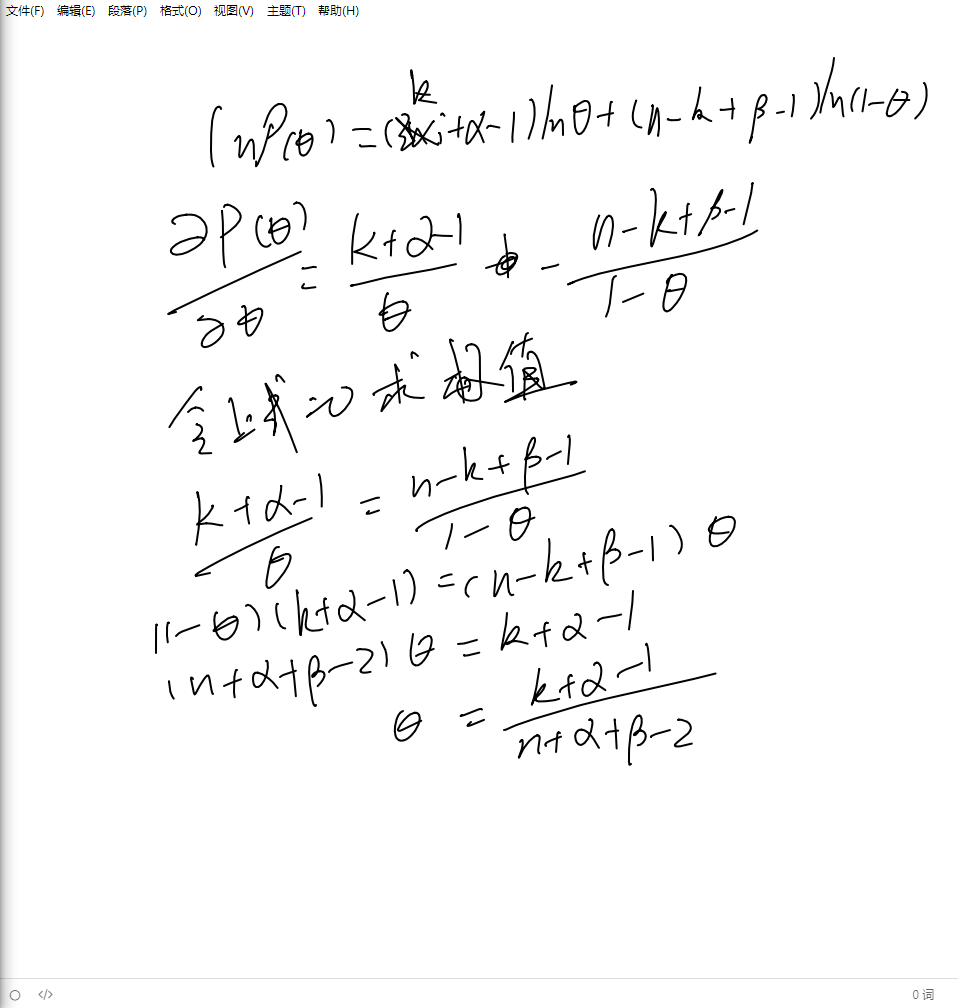 文件(F) 编辑(E) 段落(P) 格式(O) 视图(V) 主题(T) 帮助(H)
k
ln P(θ) = (i+α-1)lnθ + (n-k+β-1)ln(1-θ)
∂P(θ)/∂θ = (k+α-1)/θ - (n-k+β-1)/(1-θ)
令上式=0求极值
(k+α-1)/θ = (n-k+β-1)/(1-θ)
(1-θ)(k+α-1) = (n-k+β-1)θ
(n+α+β-2)θ = k+α-1
θ = (k+α-1)/(n+α+β-2)
</> 0 词